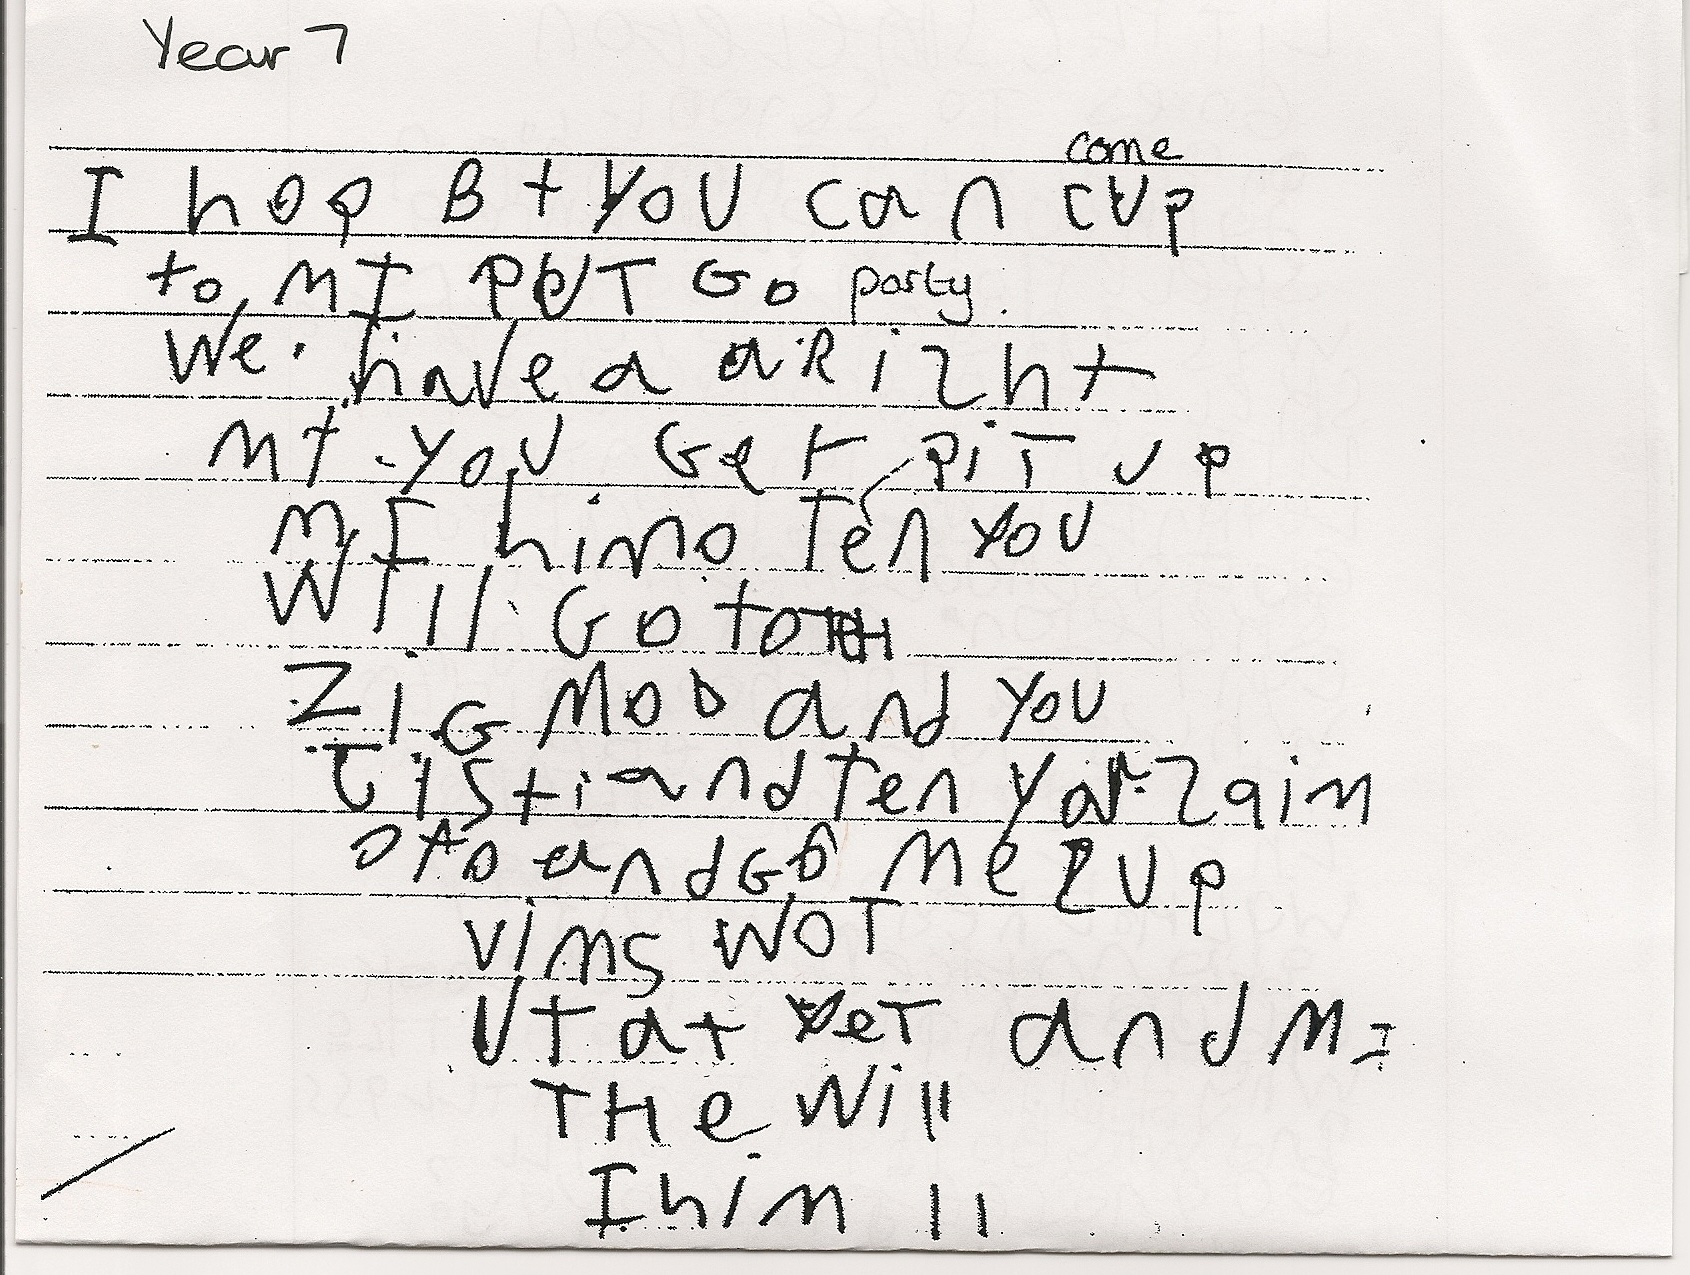 Year 7
come
I hop Bt YOU can cup
to MI PUT Go party.
We. have a aRight
Mt YOU Get PiT UP
MI himo Ten YOU
Will Go to TH
ZiG MOD and YOU
Tisti and Ten Zaim
and Go Me2 Up
Vims WOT
Ut at YeT and MI
THe Will
I him 11